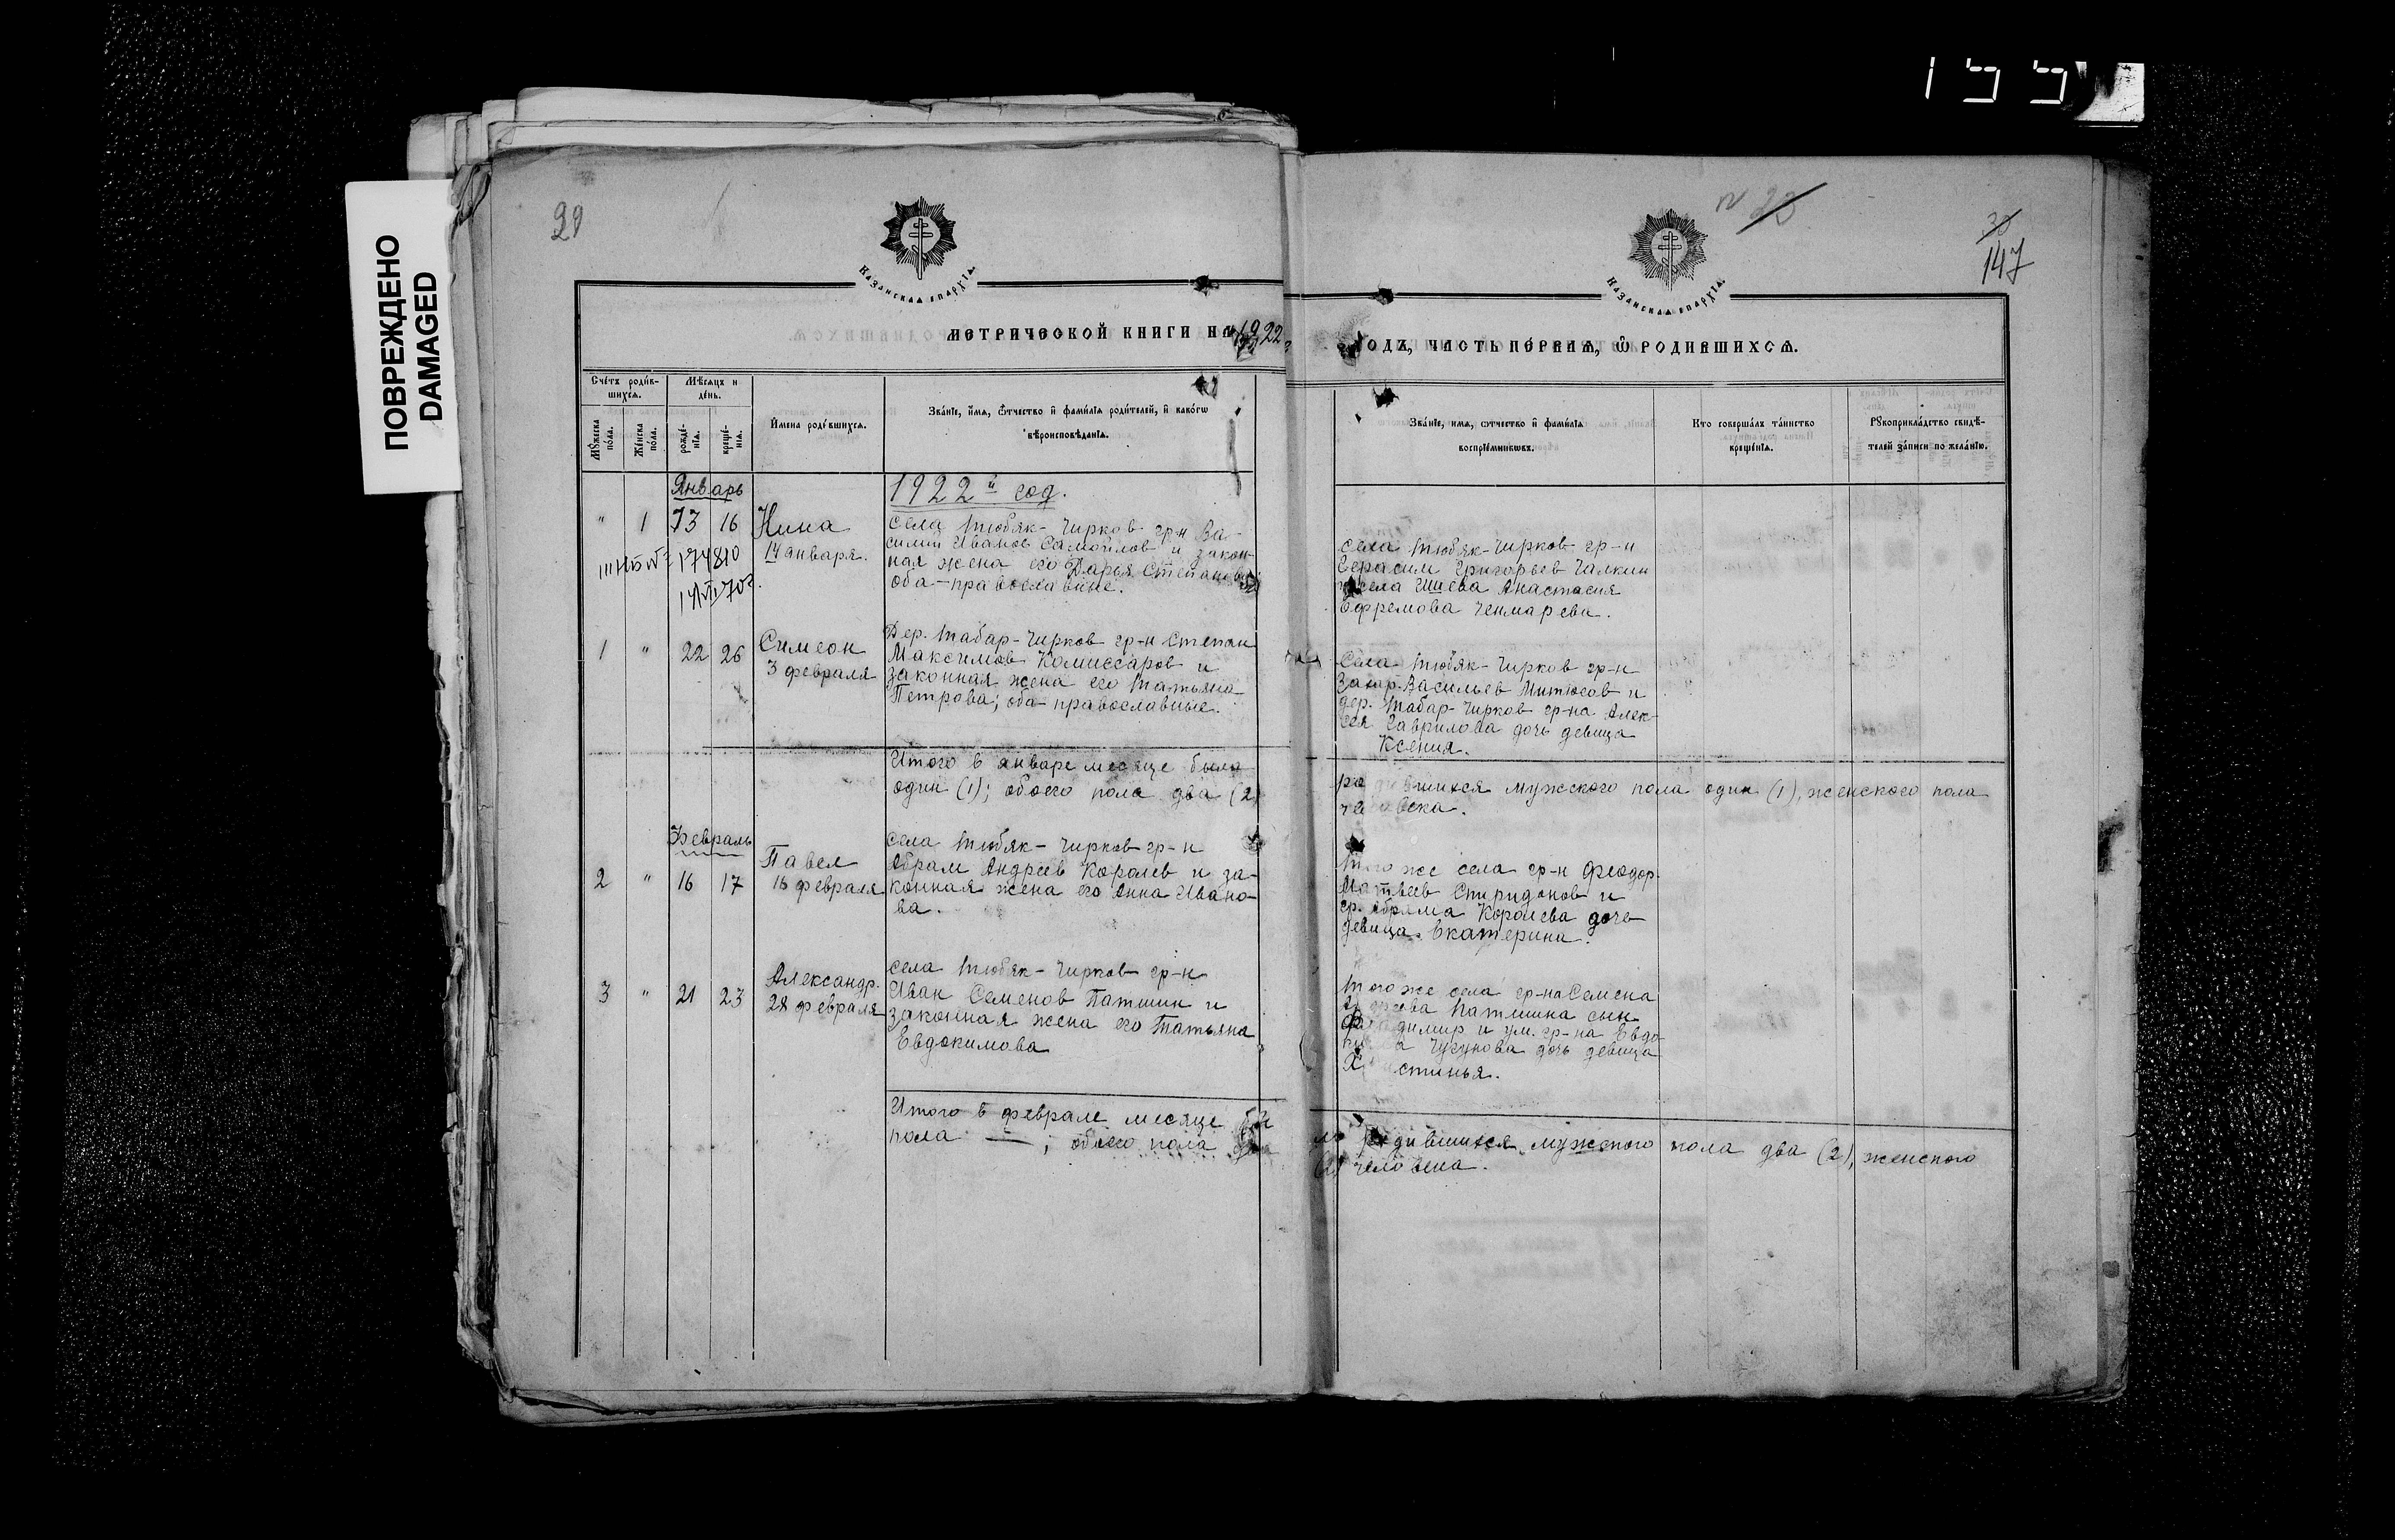 155
ПОВРЕЖДЕНО
DAMAGED
29
Казанская епархія.
МЕТРИЧЕСКОЙ КНИГИ НА 1922
Счетъ родив-
шихся.
Мѣсяцъ и
день.
Мужеска
пола.
Женска
пола.
рожде-
нія.
креще-
нія.
Имена родившихся.
Званіе, имя, отчество и фамилія родителей, и какого
вѣроисповѣданія.
Январь
1922й год.
" 1 13 16 Нина
14 января.
села Тюбяк-Чирков гр-н Ва-
силий Иванов Самойлов и закон-
ная жена его Дарья Степанова;
оба-православные.
1 " 22 26 Симеон
3 февраля
Дер. Табар-Чирков гр-н Степан
Максимов Комиссаров и
законная жена его Татьяна
Петрова; оба православные.
Итого в январе месяце было
один (1); обоего пола два (2)
Февраль
2 " 16 17 Павел
16 февраля
села Тюбяк-Чирков гр-н
Абрам Андреев Королев и за-
конная жена его Анна Ивано-
ва.
3 " 21 23 Александр.
28 февраля
села Тюбяк-Чирков гр-н
Иван Семенов Патшин и
законная жена его Татьяна
Евдокимова
Итого в феврале месяце бы
пола — ; обоего пола два
23
30
147
Казанская епархія.
ГОДЪ, ЧАСТЬ ПЕРВАЯ, Ѡ РОДИВШИХСЯ.
Званіе, имя, отчество и фамилія
воспріемниковъ.
Кто совершалъ таинство
крещенія.
Рукоприкладство свидѣ-
телей записи по желанію.
села Тюбяк-Чирков гр-н
Герасим Григорьев Чалкин
и села Анастасия
Ефремова
Села Тюбяк-Чирков гр-н
Захар Васильев Митюсов и
дер. Табар-Чирков гр-на Алек-
сея Гаврилова дочь девица
Ксения.
родившихся мужского пола один (1), женского пола
человека.
того же села гр-н Феодор
Матвеев Спиридонов и
гр. Абрама Королева дочь
девица Екатерина.
того же села гр-на Семена
Патшина сын
и ум. гр-на Евдо-
дочь девица
Христинья.
ло родившихся мужского пола два (2), женского
(2) человека.